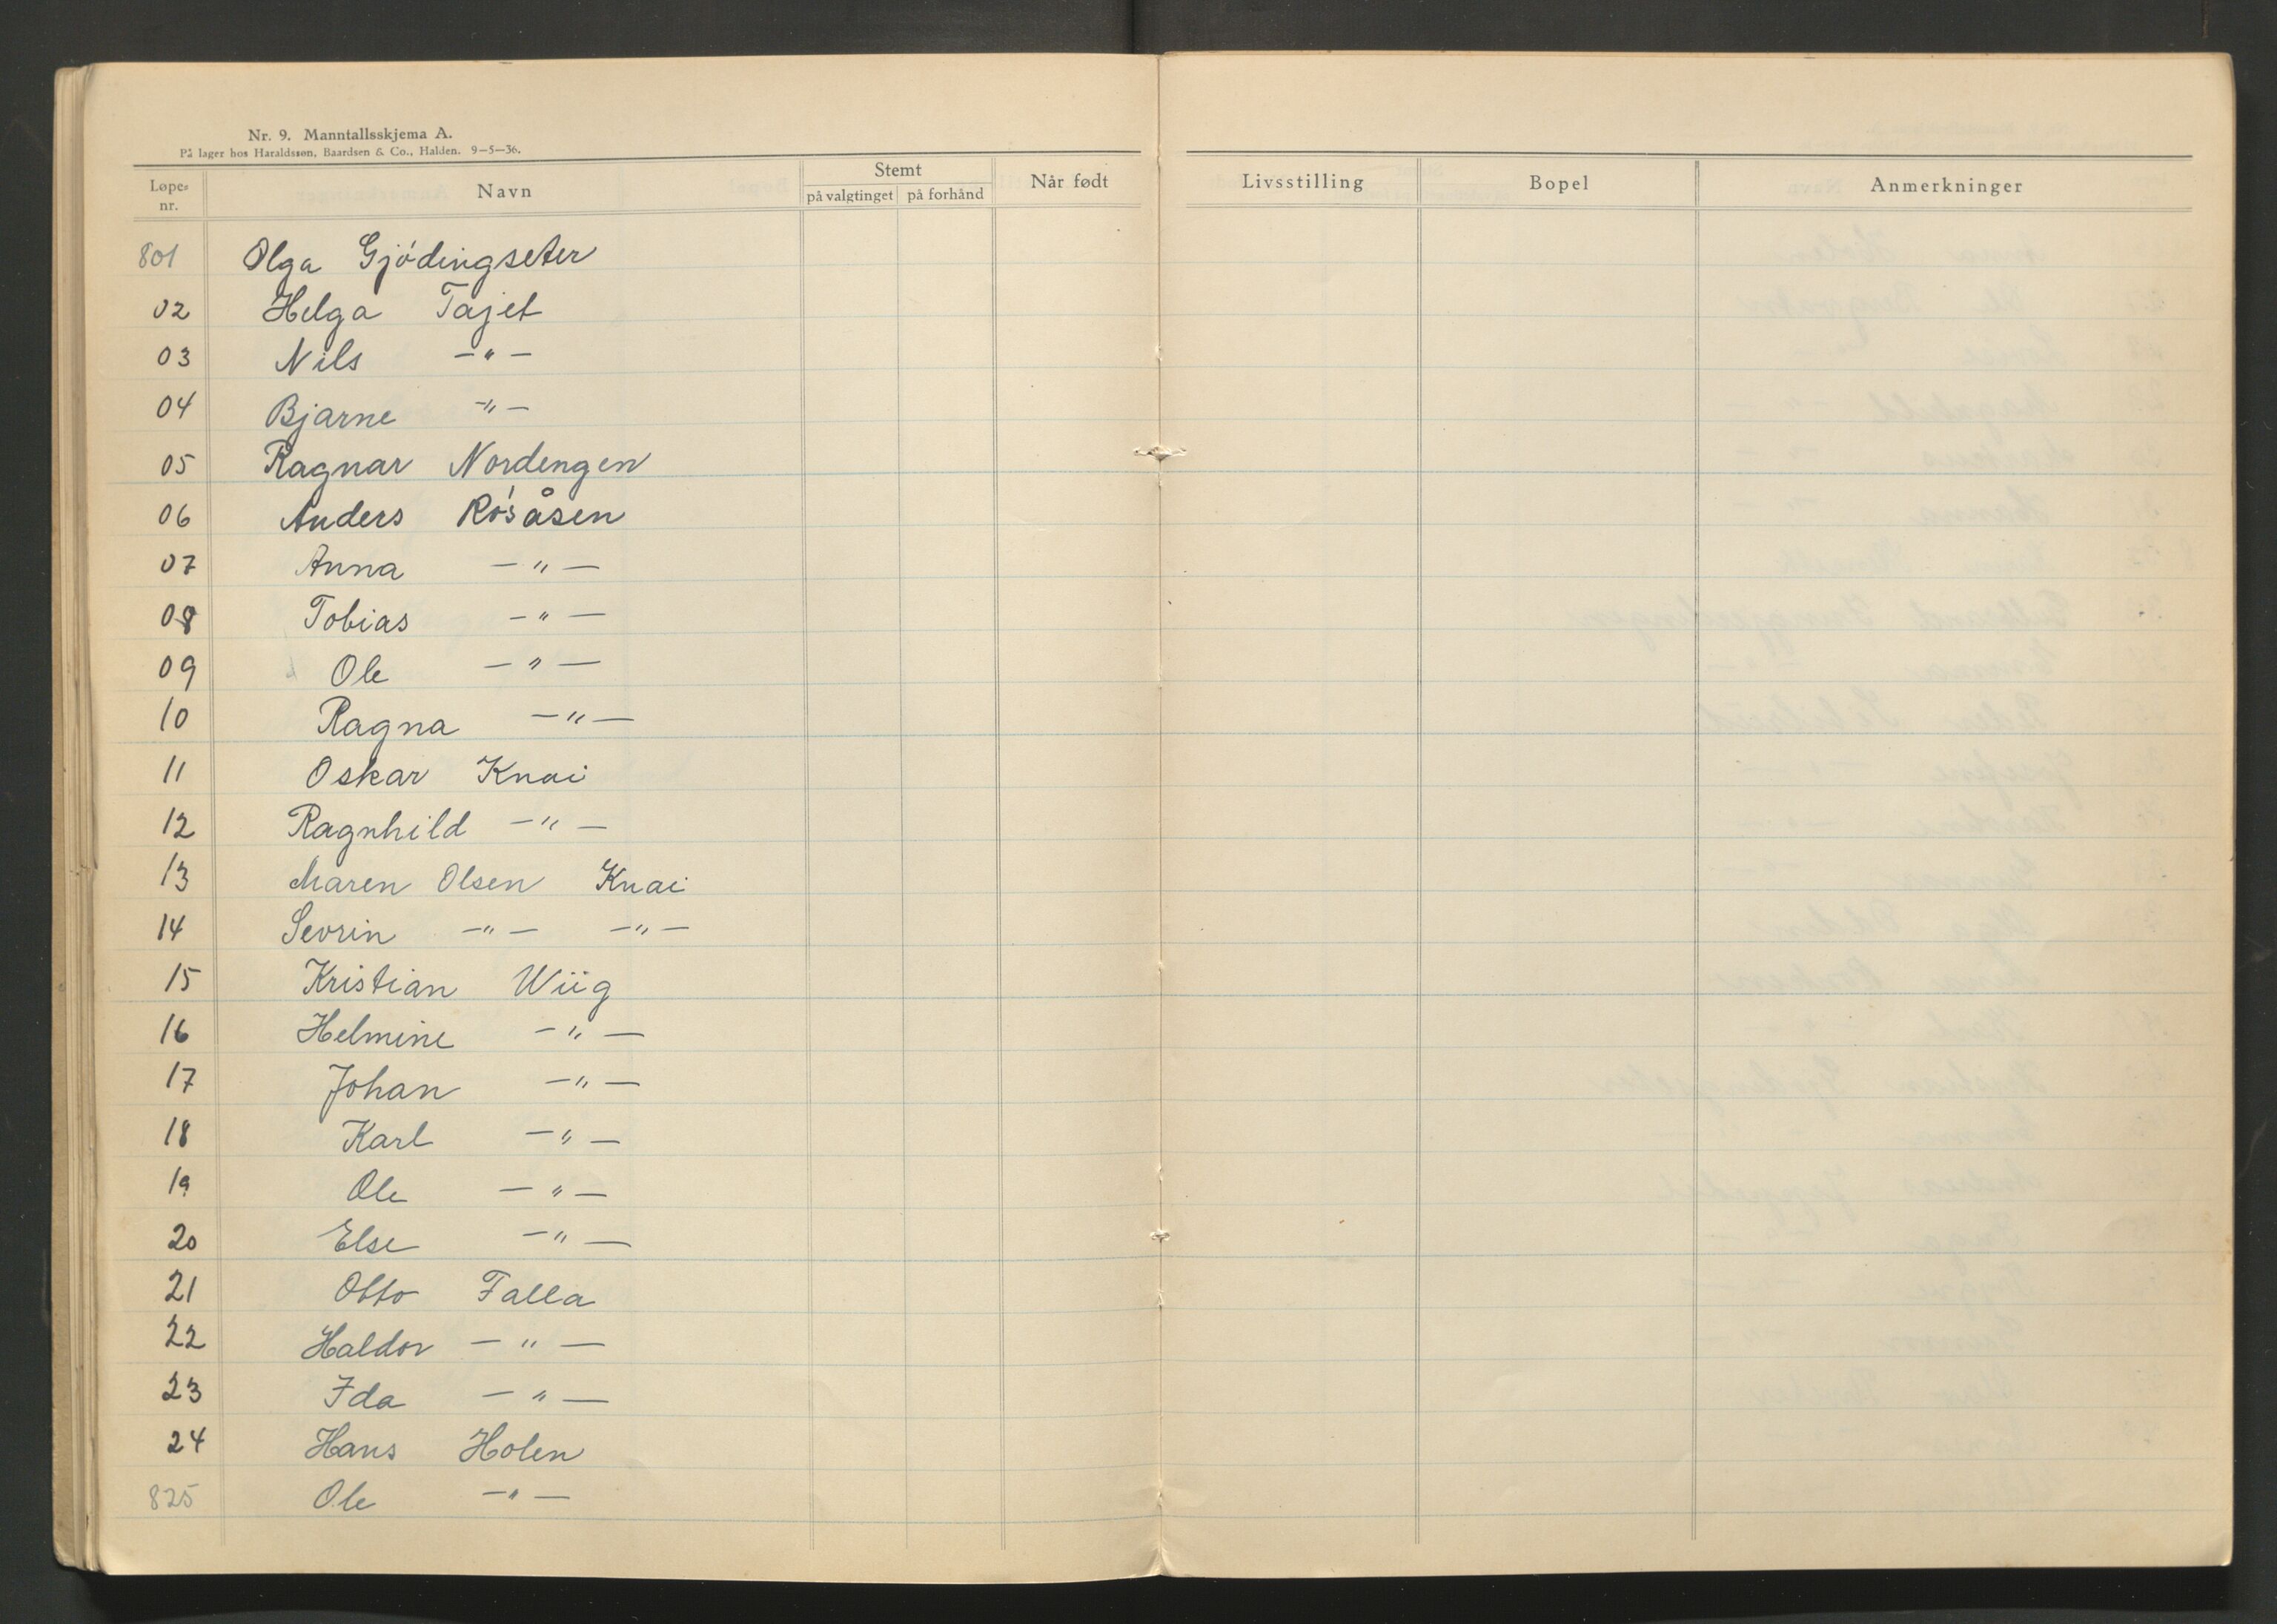 Nr. 9. Manntallsskjema A.
På lager hos Haraldssøn, Baardsen & Co., Halden. 9—5—36.
Løpe-nr. Navn Stemt på valgtinget på forhånd Når født Livsstilling Bopel Anmerkninger
801 Olga Gjødingseter
02 Helga Tajet
03 Nils —"—
04 Bjarne —"—
05 Ragnar Nordengen
06 Anders Røsåsen
07 Anna —"—
08 Tobias —"—
09 Ole —"—
10 Ragna —"—
11 Oskar Knai
12 Ragnhild —"—
13 Maren Olsen Knai
14 Sevrin —"— —"—
15 Kristian Wiig
16 Helmine —"—
17 Johan —"—
18 Karl —"—
19 Ole —"—
20 Else —"—
21 Otto Falla
22 Haldor —"—
23 Ida —"—
24 Hans Holen
825 Ole —"—